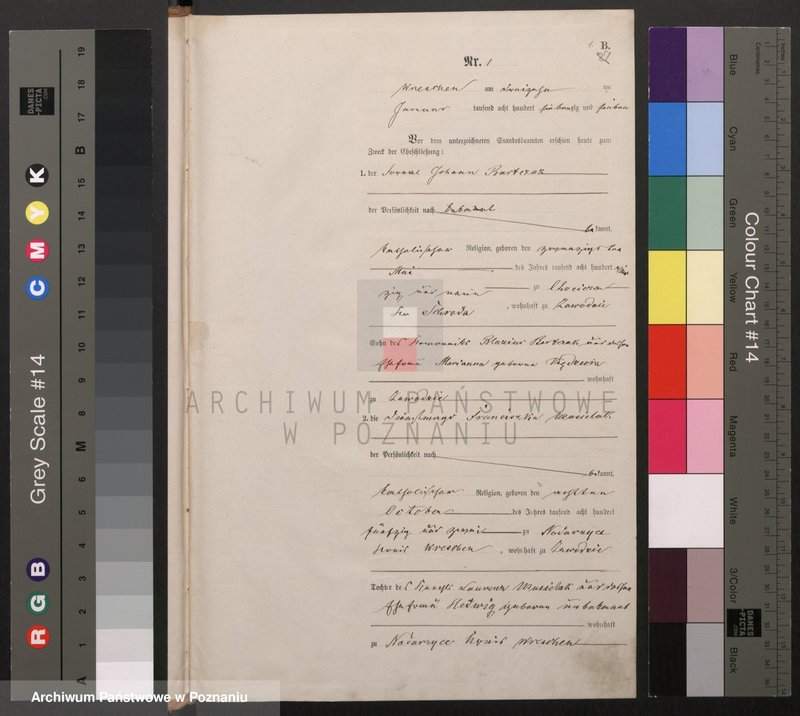 B.
Nr. 1
Wreschen am dreizehn ten
Januar tausend acht hundert siebenzig und sieben
Vor dem unterzeichneten Standesbeamten erschien heute zum
Zweck der Eheschließung:
1. der Fornal Johann Bartczak
der Persönlichkeit nach bekannt
kannt,
katholischer Religion, geboren den zwanzigsten
Mai des Jahres tausend acht hundert
zig und neun zu Chocicza
Schroda, wohnhaft zu Zawodzie
Sohn des Komorniks Blasius Bartczak und dessen
Ehefrau Marianna geborene
wohnhaft
zu Zawodzie
2. die Dienstmagd Franciszka Musielak
der Persönlichkeit nach
kannt,
katholischer Religion, geboren den achten
October des Jahres tausend acht hundert
fünfzig und zwei zu Nadarzyce
Kreis Wreschen, wohnhaft zu Zawodzie
Tochter des Laurenz Musielak und dessen
Ehefrau Hedwig geborene unbekannt
wohnhaft
zu Nadarzyce Kreis Wreschen
ARCHIWUM PAŃSTWOWE
W POZNANIU
Archiwum Państwowe w Poznaniu
Grey Scale #14
DANES
PICTA
.COM
R G B
C M Y K
A 1 2 3 4 5 6 M 8 9 10 11 12 13 14 15 B 17 18 19
Colour Chart #14
Blue
Cyan
Green
Yellow
Red
Magenta
White
3/Color
Black
Centimetres
DANES
PICTA
.COM